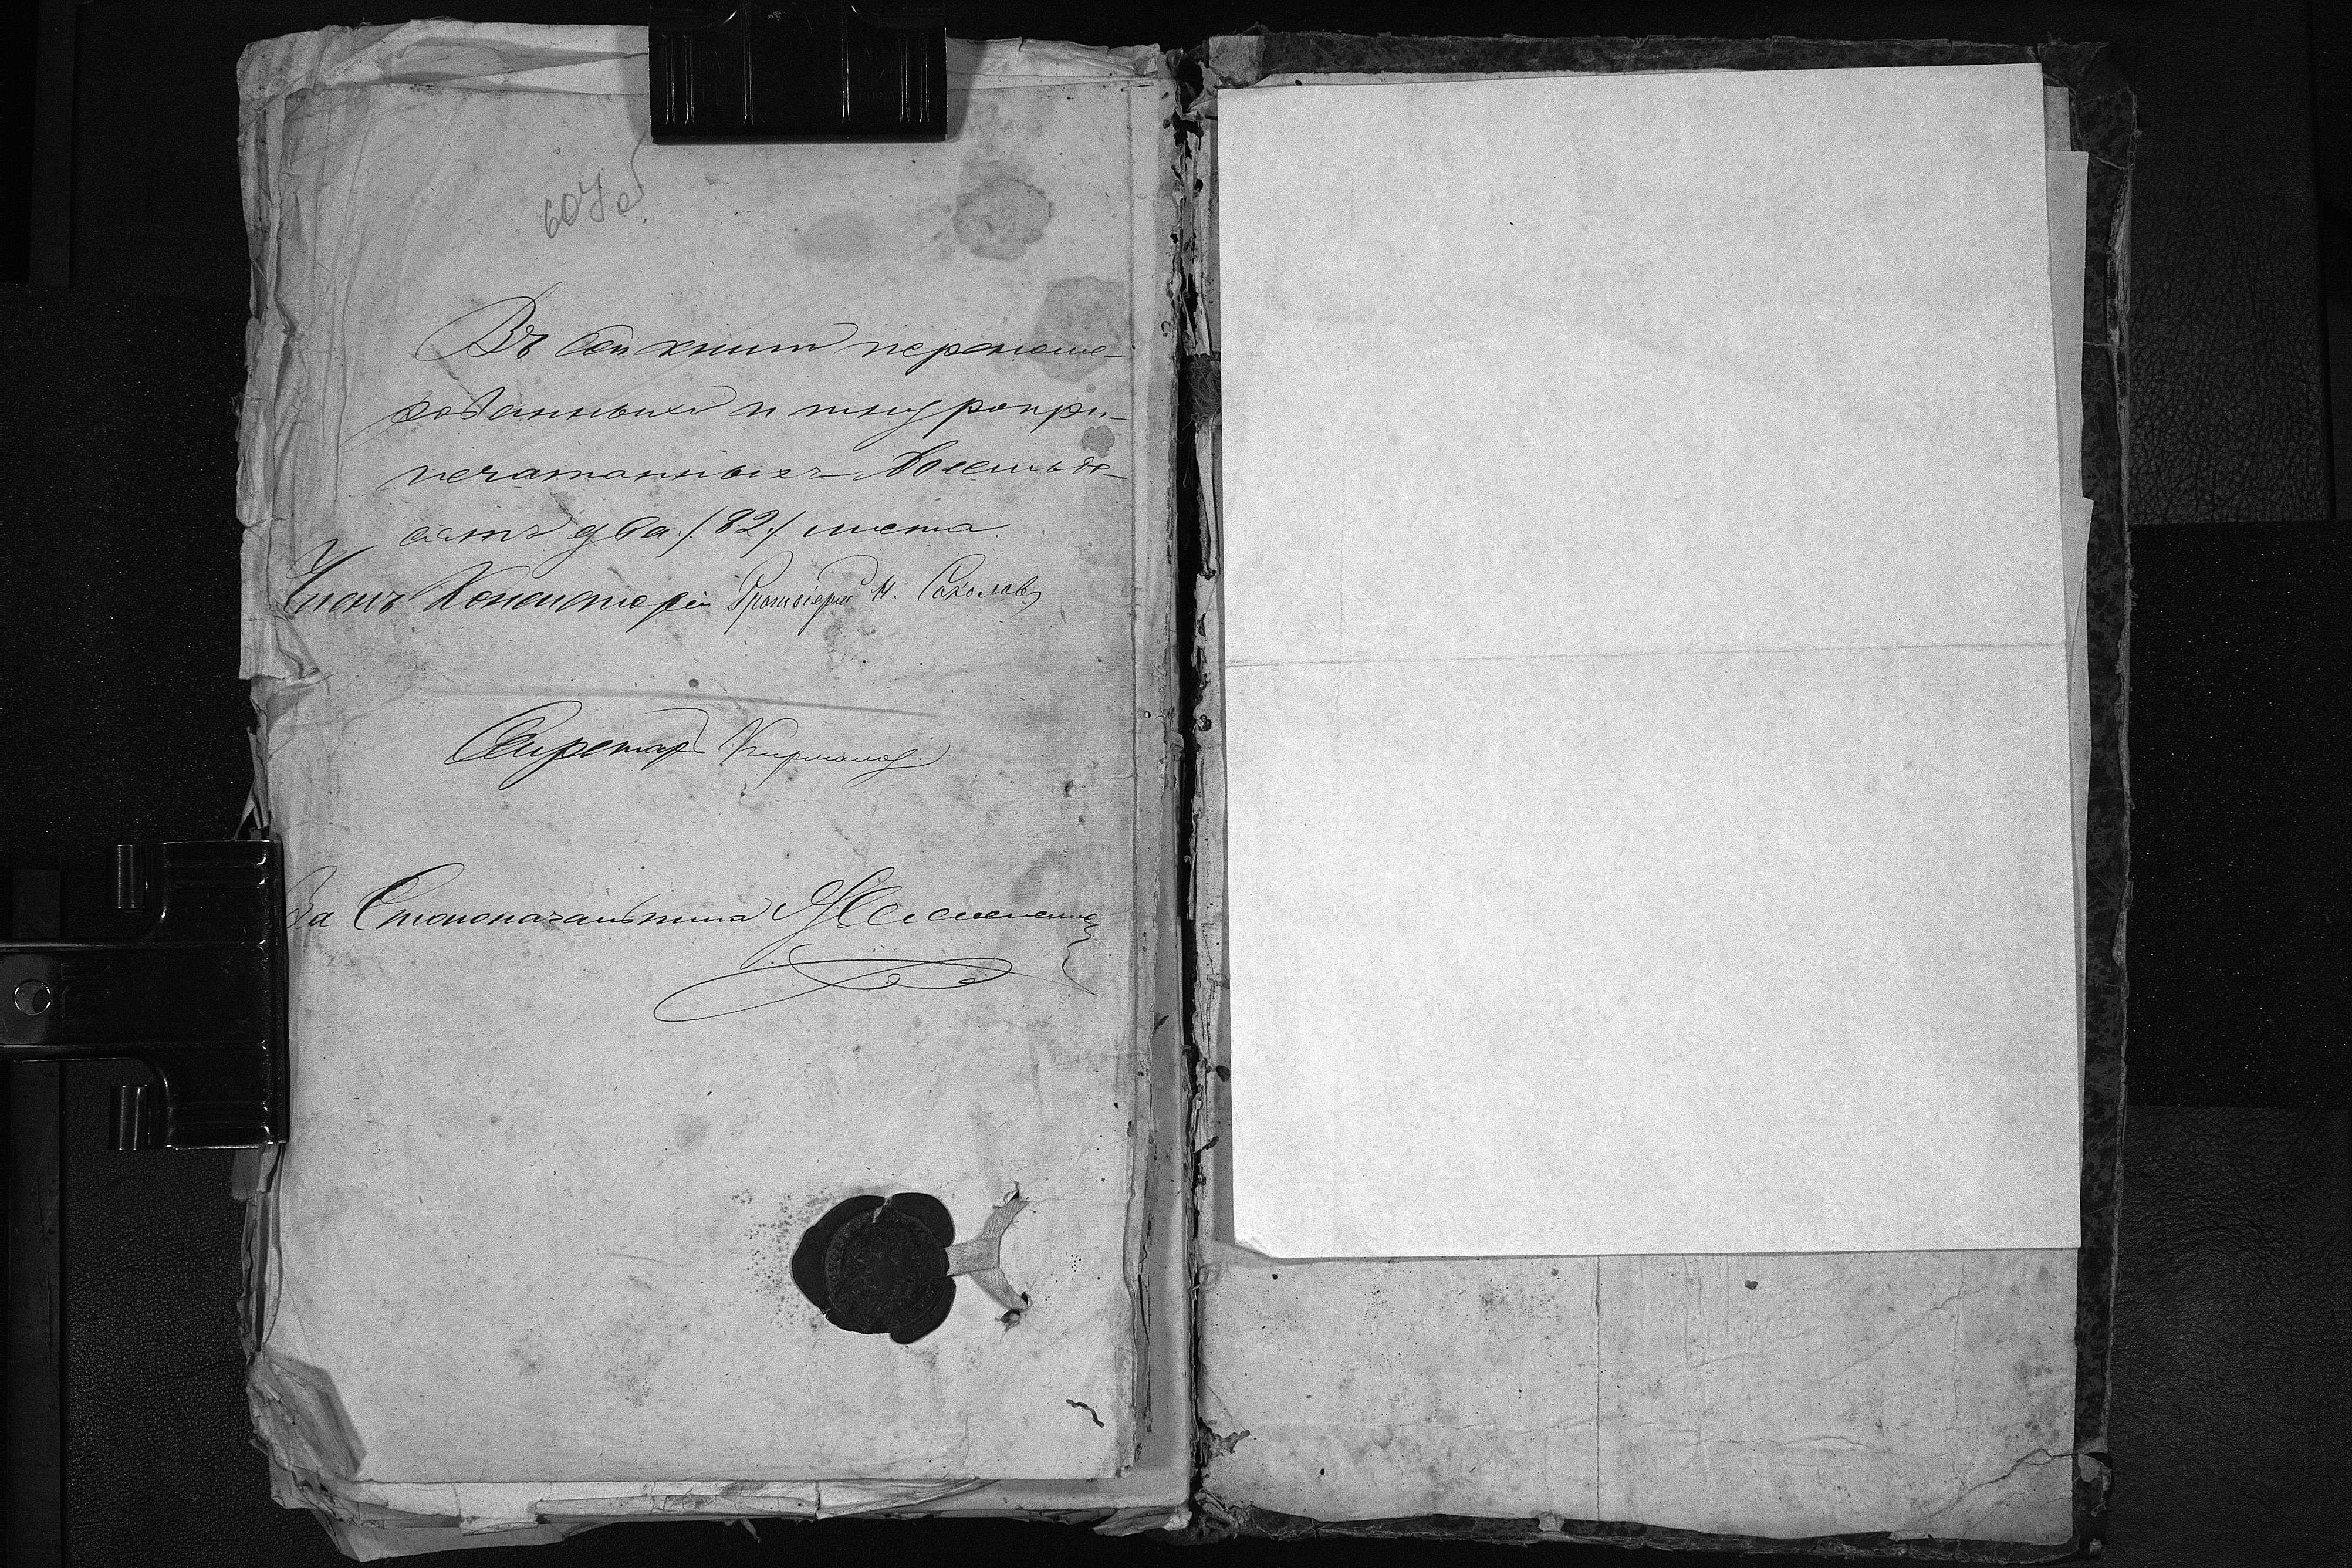 607 об
Въ сей книгѣ перенуме-
рованныхъ и шнуропри-
печатанныхъ восемьде-
сятъ два /82/ листа
Членъ Консисторіи Протоіерей Н. Соколовъ
Секретарь
За Столоначальника